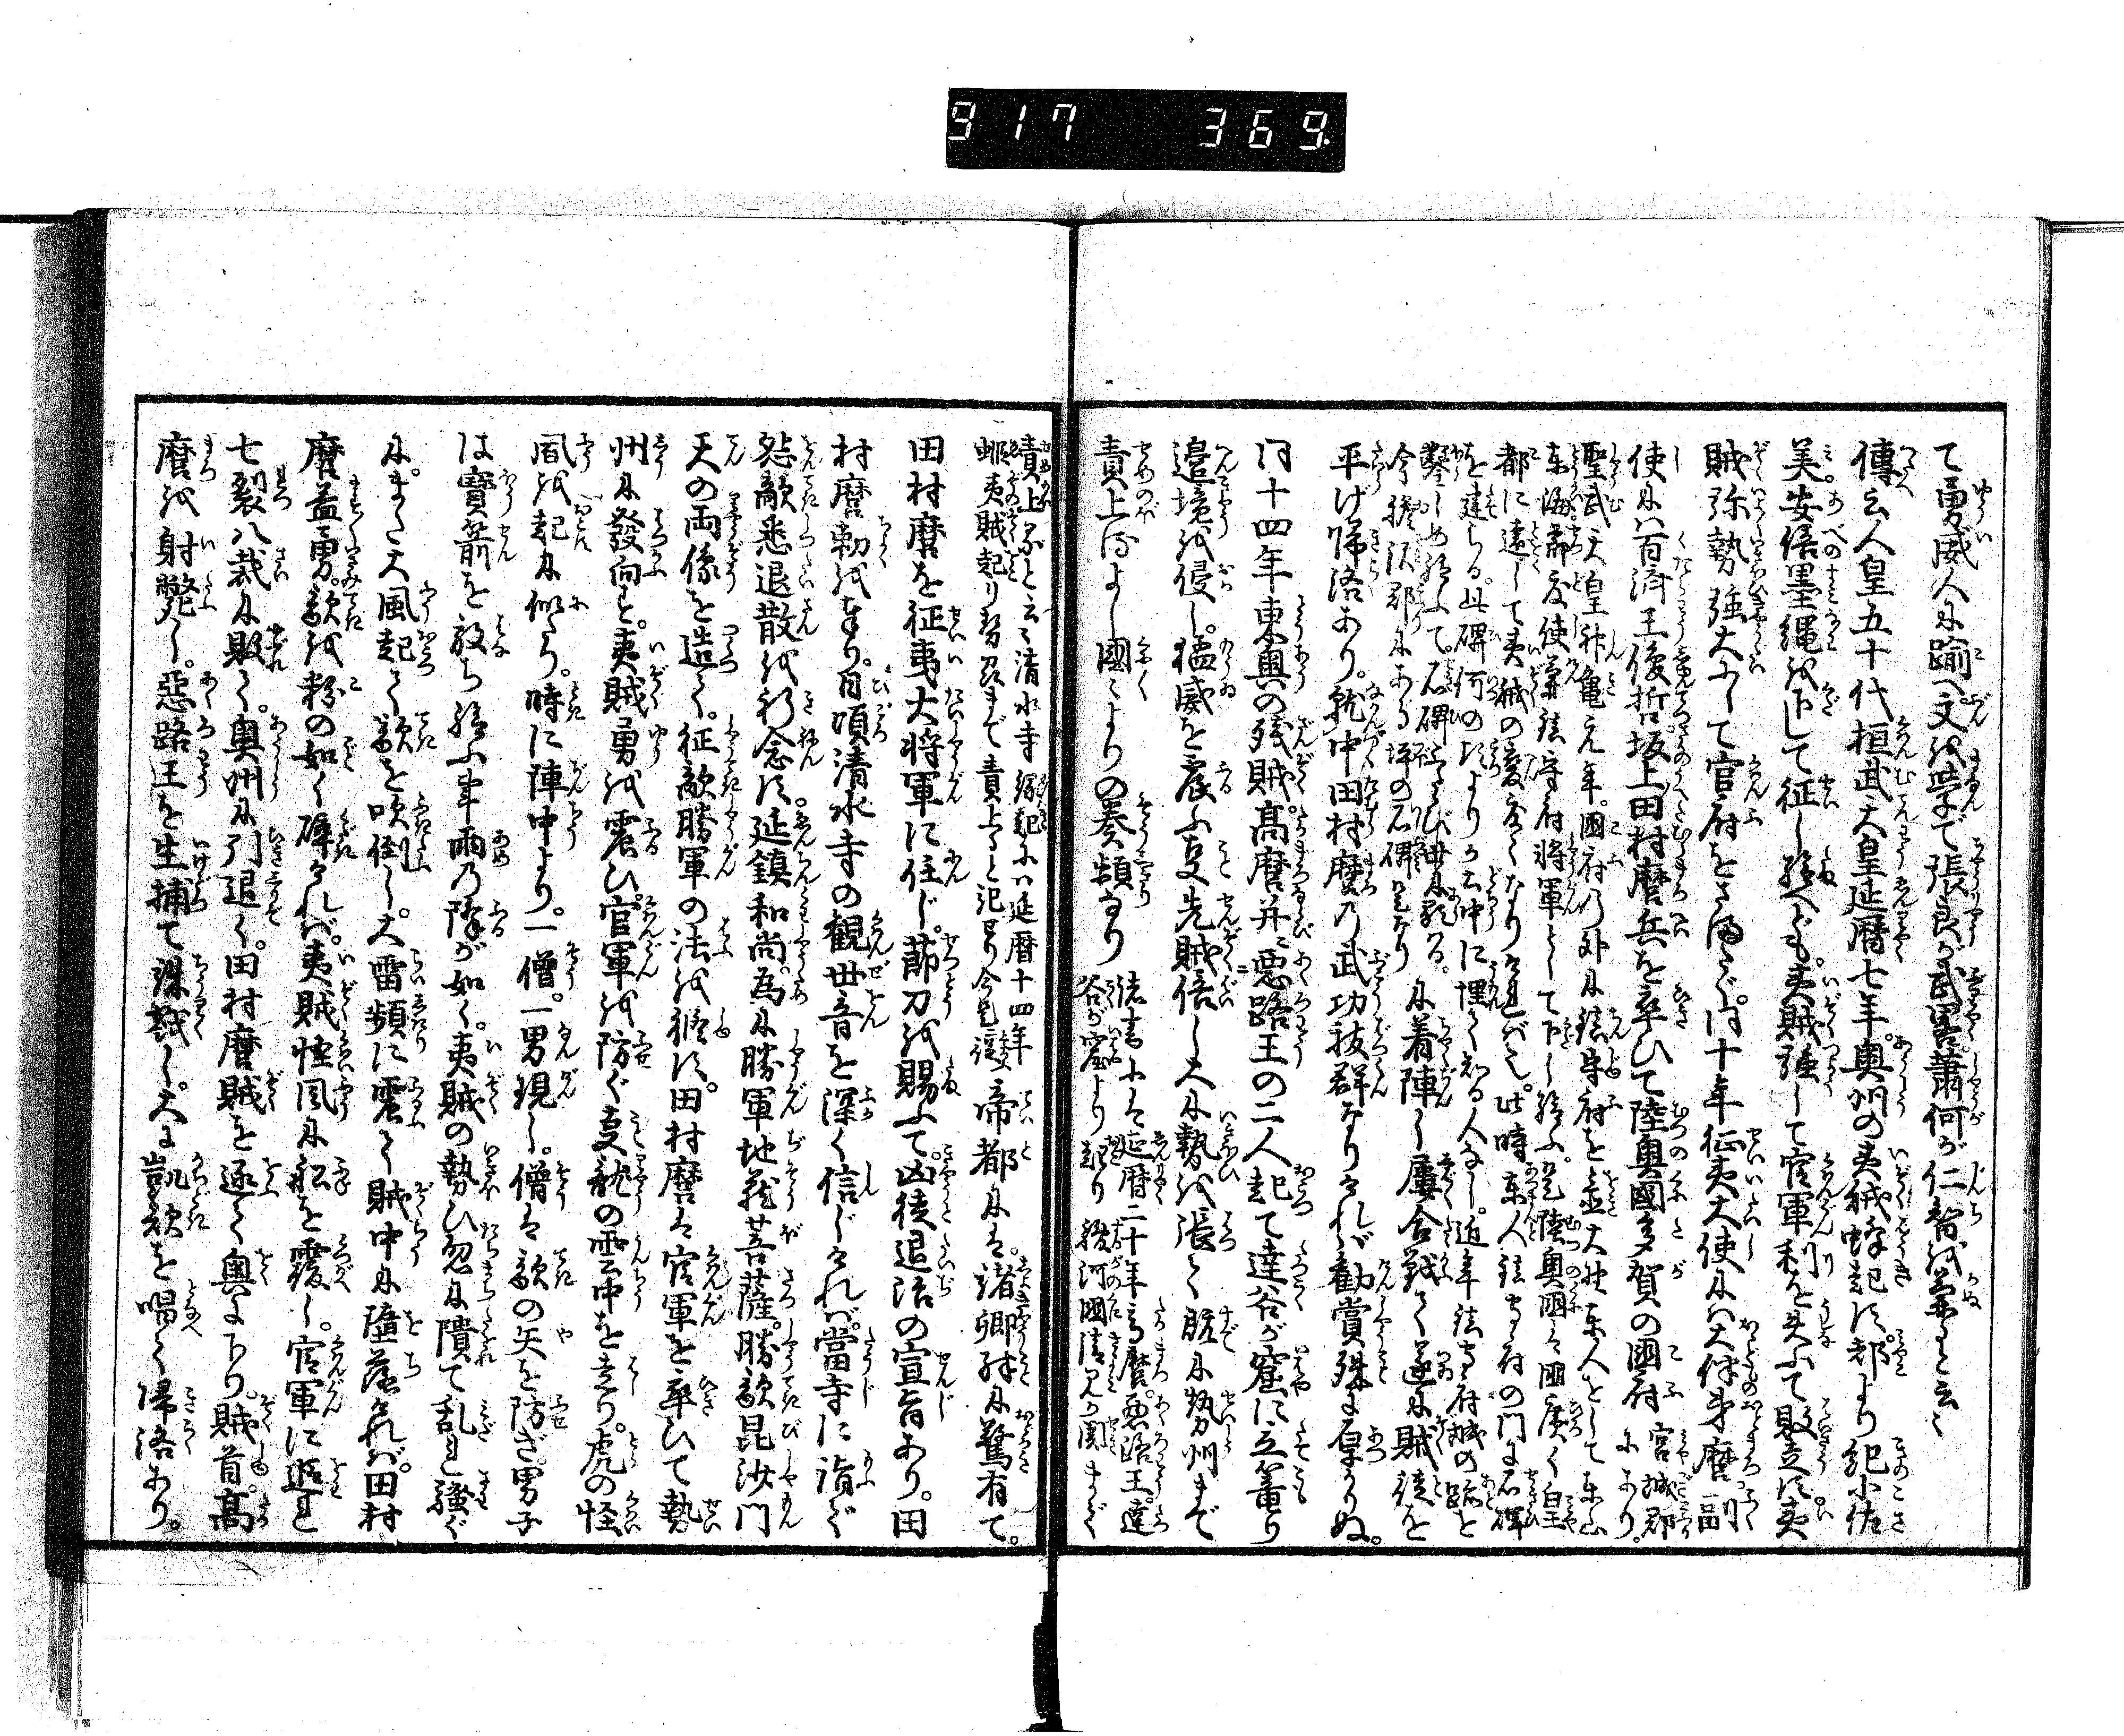 917 369
て勇威人に踰へ文を学で張良が武畧蕭何が仁智を兼と云く
傳云人皇五十代桓武天皇延暦七年。奥州の夷賊蜂起す。都より紀小佐
美。安倍墨縄を下して征し給へども。夷賊強して官軍利を失ふて敗走す。夷
賊弥勢強大にして官府をさまたぐ。同十年征夷大使には大伴弟麿。副
使には百済王俊哲。坂上田村麿兵を率ひて陸奥國多賀の國府宮城郡にあり。
聖武天皇神亀元年。國府の外に鎮守府を並大野東人をして東山
東海節度使兼鎮守府将軍として下し給ふ。是陸奥國は國廣く皇
都に遠して夷賊の変多くなりければ也。此時東人鎮守府の門に石碑
を建らる。此碑何の頃よりか土中に埋て知る人なし。近年鎮守府城の跡を
鑿しめ給ふて。石碑ふたゝび世に顕る。
今膽沢郡にある坪の石碑是なり
に着陣し屢合戦して遂に賊徒を
平げ帰洛あり。就中田村麿の武功抜群なりければ勧賞殊に厚かりぬ。
同十四年東奥の残賊。高麿并に悪路王の二人起て達谷が窟に立篭り
邉境を侵し。猛威を震ふ事先賊倍し大に勢を張て既に勢州まで
責上るよし國〻よりの奏頻なり
諸書には延暦二十年高麿。悪路王。達
谷が窟より起り駿河國清見が関まで
責上ると云々清水寺縁起には延暦十四年
蝦夷賊起り勢州まで責上ると記せり今是に従
帝都には。諸卿殊に驚有て。
田村麿を征夷大将軍に任じ。節刀を賜ふて。凶徒退治の宣旨あり。田
村麿勅を奉り。日頃清水寺の観世音を深く信じければ。當寺に詣で
怨敵悉退散を祈念す。延鎮和尚。為に勝軍地蔵菩薩。勝敵毘沙門
天の両像を造て。征敵勝軍の法を修す。田村麿は官軍を率ひて勢
州に發向と。夷賊勇を震ひ。官軍を防ぐ事龍の雲中を走り。虎の怪
風を起に似たり。時に陣中より。一僧。一男現し。僧は敵の矢を防ぎ。男子
は寳箭を放ち給ふ事雨の降が如く。夷賊の勢ひ忽に隤て乱れ騒ぐ
に。また大風起て敵を吹倒し。大雷頻に震て賊中に墮落ければ。田村
麿益勇。敵を粉の如く砕ければ。夷賊怪風に舩を覆し。官軍に追れ
七裂八裁に敗て。奥州に引退く。田村麿賊を逐て奥に下り。賊首。高
麿を射斃し。悪路王を生捕て誅戮し。大に凱歌を唱て帰洛あり。